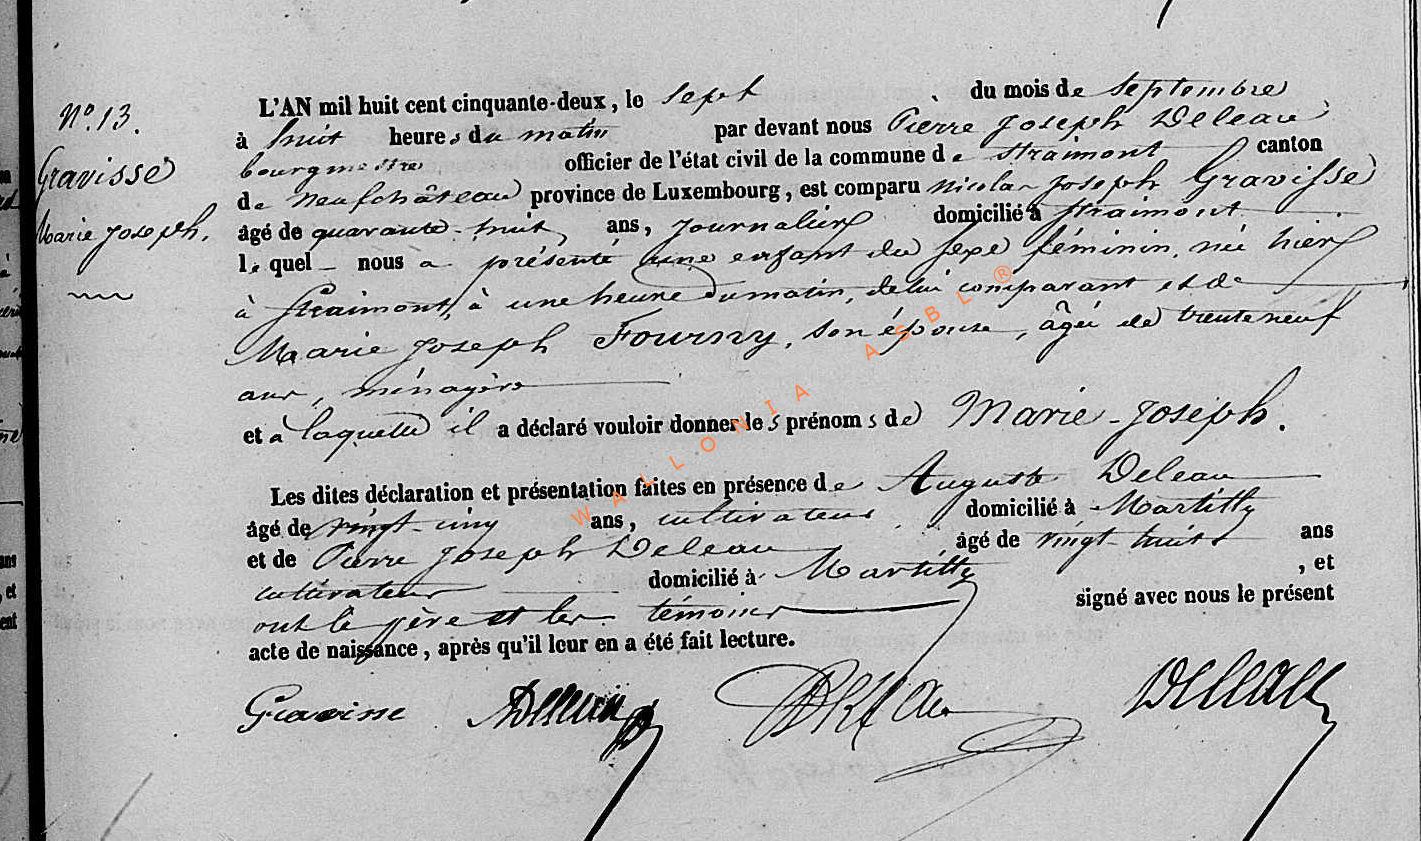 N.° 13.
Gravisse
Marie Joseph.
L'AN mil huit cent cinquante-deux, le sept du mois de septembre
à huit heures du matin par devant nous Pierre Joseph Deleau
bourgmestre officier de l'état civil de la commune de Straimont canton
de Neufchâteau province de Luxembourg, est comparu Nicolas Joseph Gravisse
âgé de quarante-huit ans, journalier domicilié à Straimont
lequel nous a présenté une enfant du sexe féminin, née hier
à Straimont, à une heure du matin, de lui comparant et de
Marie Joseph Fourny, son épouse, âgée de trente neuf
ans, ménagère
et à laquelle il a déclaré vouloir donner les prénoms de Marie-Joseph.
Les dites déclaration et présentation faites en présence de Auguste Deleau
âgé de vingt-cinq ans, cultivateur domicilié à Martilly
et de Pierre Joseph Deleau âgé de vingt-huit ans
cultivateur domicilié à Martilly, et
ont le père et les témoins signé avec nous le présent
acte de naissance, après qu'il leur en a été fait lecture.
Gravisse Deleau
WALLONIA ASBL ®